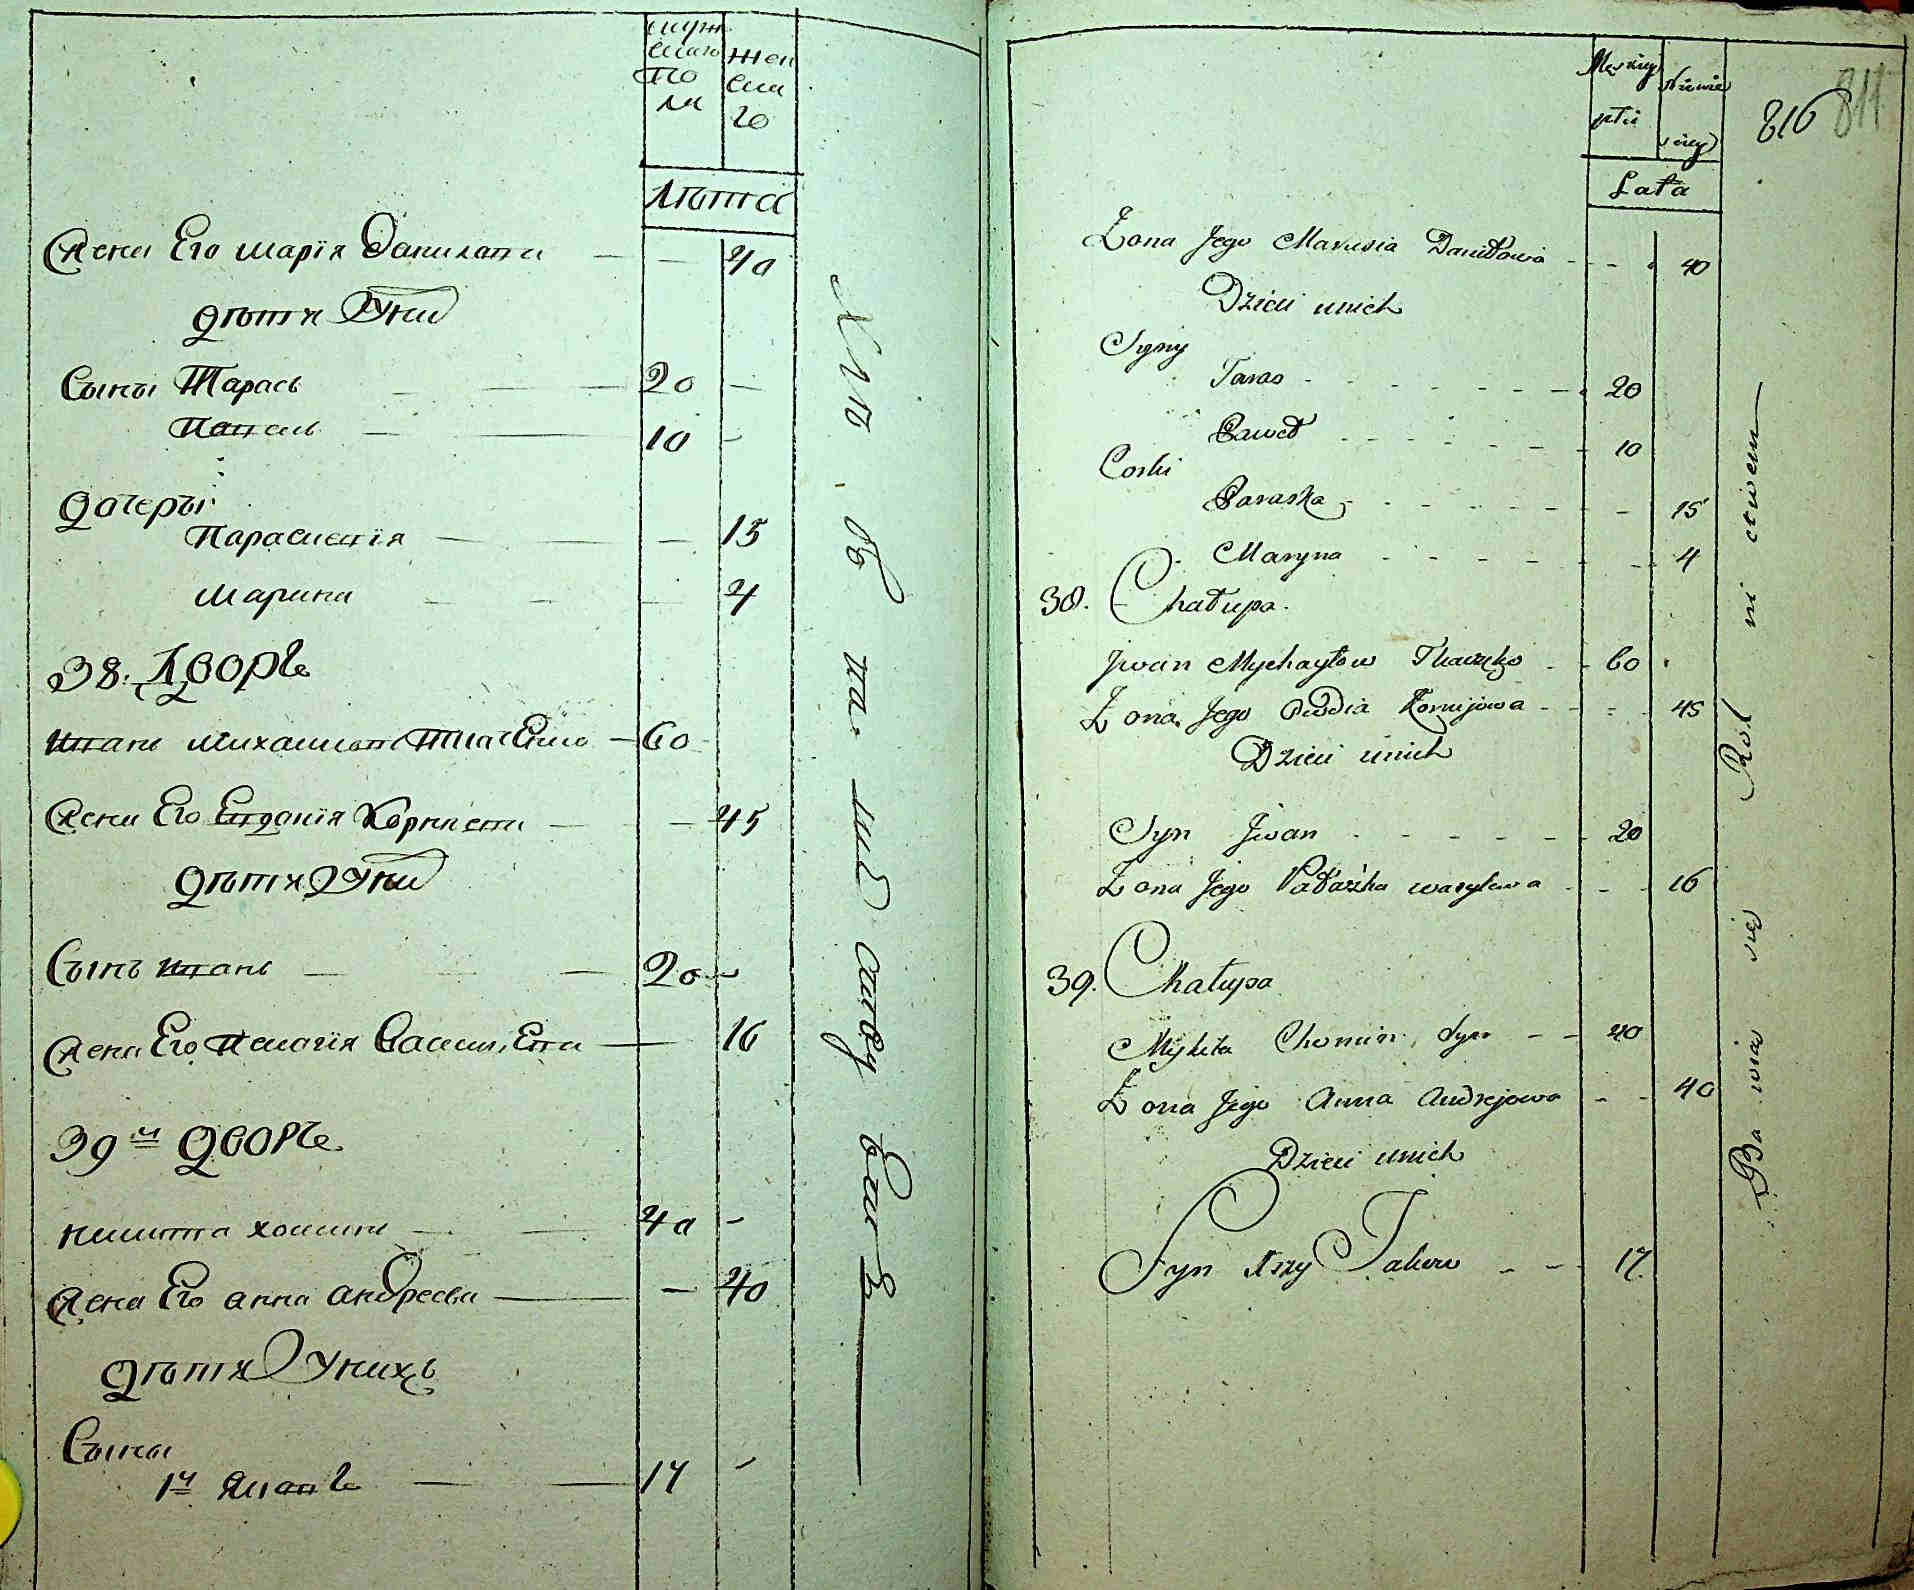 мужескаго пола
женскаго
Лѣта
Жена Его Марїя Данилова — — 40
дѣти У них
Сыны Тарасъ — — 20 —
Павелъ — — 10 —
дочеры
Параскевїя — — — 15
Марина — — — 4
38. Дворъ
Иванъ Михайловъ Ткаченко — 60
Жена Его Евдокїя Корнѣева — — 45
дѣти У них
Сынъ Иванъ — — 20 —
Жена Его Пелагїя Василіева — 16
39й дворъ
Никита Хоминъ — — 40 —
Жена Его Анна Андреева — — 40
дѣти У нихъ
Сыны
1й Яковъ — — 17 —
Хлѣбопашествомъ
Męskiej płci
Niewieściej
816
811
Lata
Żona Jego Marusia Daniłowa - - - 40
Dzieci unich
Syny
Taras - - - - - 20
Paweł - - - - - 10
Corki
Paraska - - - - - 15
Maryna - - - - - 4
38. Chałupa.
Jwan Mychayłow Tkaczko - - 60
Żona Jego Owdia Kornijowa - - - 45
Dzieci unich
Syn Jwan - - - - - 20
Żona Jego Pałażka wasylowa - - - 16
39. Chałupa
Mykita Chomin Syn - - 40
Żona Jego Anna Andrejowa - - 40
Dzieci unich
Syn 1szy Jakow - - - 17
Bawia się Rolnictwem